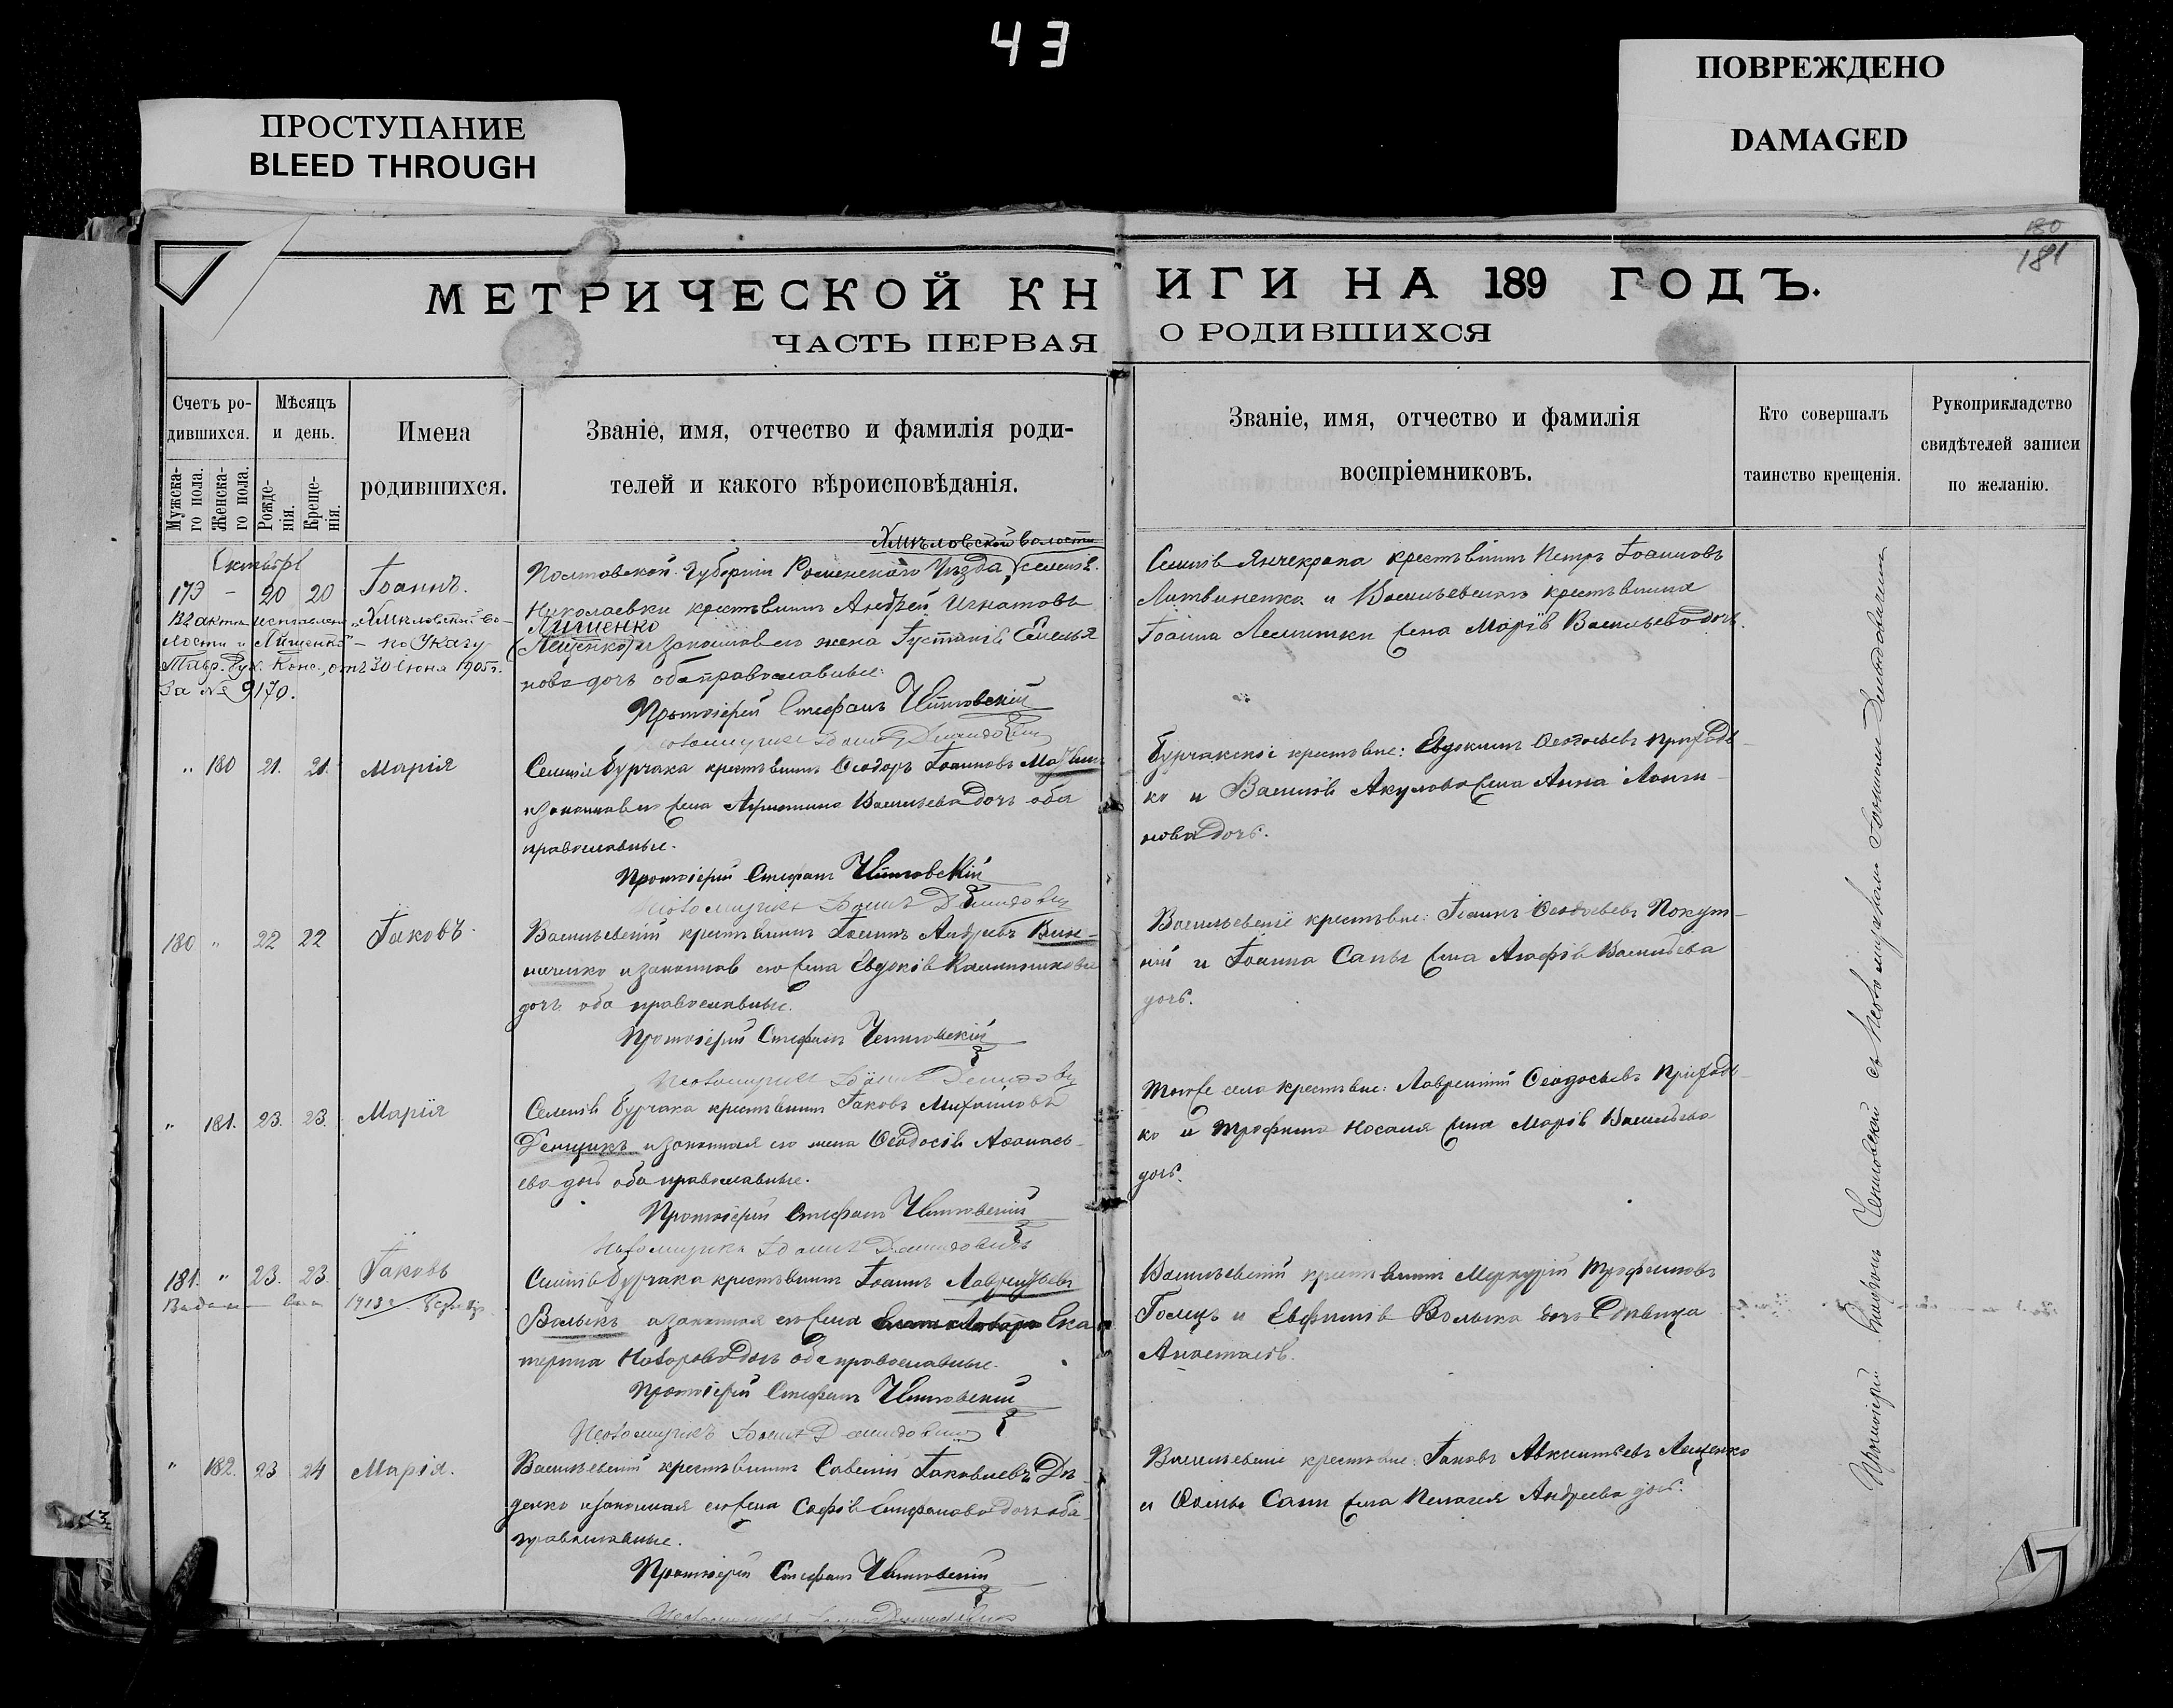 43
ПРОСТУПАНИЕ
BLEED THROUGH
ПОВРЕЖДЕНО
DAMAGED
180
181
МЕТРИЧЕСКОЙ КНИГИ НА 189 ГОДЪ.
ЧАСТЬ ПЕРВАЯ О РОДИВШИХСЯ
Счетъ ро-
дившихся.
Мужска-
го пола.
Женска-
го пола.
Мѣсяцъ
и день.
Рожде-
нія.
Креще-
нія.
Имена
родившихся.
Званіе, имя, отчество и фамилія роди-
телей и какого вѣроисповѣданія.
Званіе, имя, отчество и фамилія
воспріемниковъ.
Кто совершалъ
таинство крещенія.
Рукоприкладство
свидѣтелей записи
по желанію.
Октябрь
179 - 20 20 Іоаннъ.
Въ актѣ исправлено „Хмѣловской во-
лости и Лищенко" - по Указу
Конс., отъ 30 Іюня 1905 г.
За № 9170.
Хмѣловской волости
Полтавской Губерніи Роменскаго Уѣзда, селенія
Николаевки крестьянинъ Андрей Игнатовъ
Лищенко
(Лещенко) и законная его жена Густинія Емелья
нова дочь оба православные.
Протоіерей Стефанъ
Псаломщикъ Іоаннъ Демидовичъ
Селенія Янчекрака крестьянинъ Петръ Іоанновъ
Литвиненко и Васильевскаго крестьянина
Іоанна жена Марія Васильева дочь.
" 180 21. 21. Марія
Селенія Бурчака крестьянинъ Ѳеодоръ Іоанновъ
и законная его жена Васильева дочь оба
православные.
Протоіерей Стефанъ
Псаломщикъ Іоаннъ Демидовичъ
Бурчакскіе крестьяне: Евдокимъ Ѳеодосьевъ Приходь-
ко и Василія Акулова жена Анна Логги-
нова дочь.
180 " 22 22 Іаковъ
Васильевскій крестьянинъ Іоаннъ Андреевъ Вин-
ниченко и законная его жена Евдокія Каллиникова
дочь оба православные.
Протоіерей Стефанъ
Псаломщикъ Іоаннъ Демидовичъ
Васильевскіе крестьяне: Іоаннъ Ѳеодосьевъ Покут-
ній и Іоанна Сапы жена Агафія Васильева
дочь.
" 181. 23. 23. Марія
Селенія Бурчака крестьянинъ Іаковъ Михаиловъ
и законная его жена Ѳеодосія Аѳанась-
ева дочь оба православные.
Протоіерей Стефанъ
Псаломщикъ Іоаннъ Демидовичъ
Того же села крестьяне: Лаврентій Ѳеодосьевъ Приходь-
ко и Трофима Носаля жена Марія Васильева
дочь.
181. " 23. 23. Іаковъ
1913 г.
Селенія Бурчака крестьянинъ Іоаннъ Лаврентьевъ
Волыкъ и законная его жена Ека
терина дочь оба православные.
Протоіерей Стефанъ
Псаломщикъ Іоаннъ Демидовичъ
Васильевскій крестьянинъ Меркурій Трофимовъ
и Евфимія Волыка дочь дѣвица
Анастасія.
" 182. 23 24 Марія.
Васильевскій крестьянинъ Савелій Іаковлевъ Дѣ-
денко и законная его жена Софія Стефанова дочь оба
православные.
Протоіерей Стефанъ
Псаломщикъ Іоаннъ Демидовичъ
Васильевскіе крестьяне: Іаковъ Авксентьевъ Лещенко
и Сапы жена Пелагея Андреева дочь.
Протоіерей съ псаломщикомъ Іоанномъ Демидовичемъ